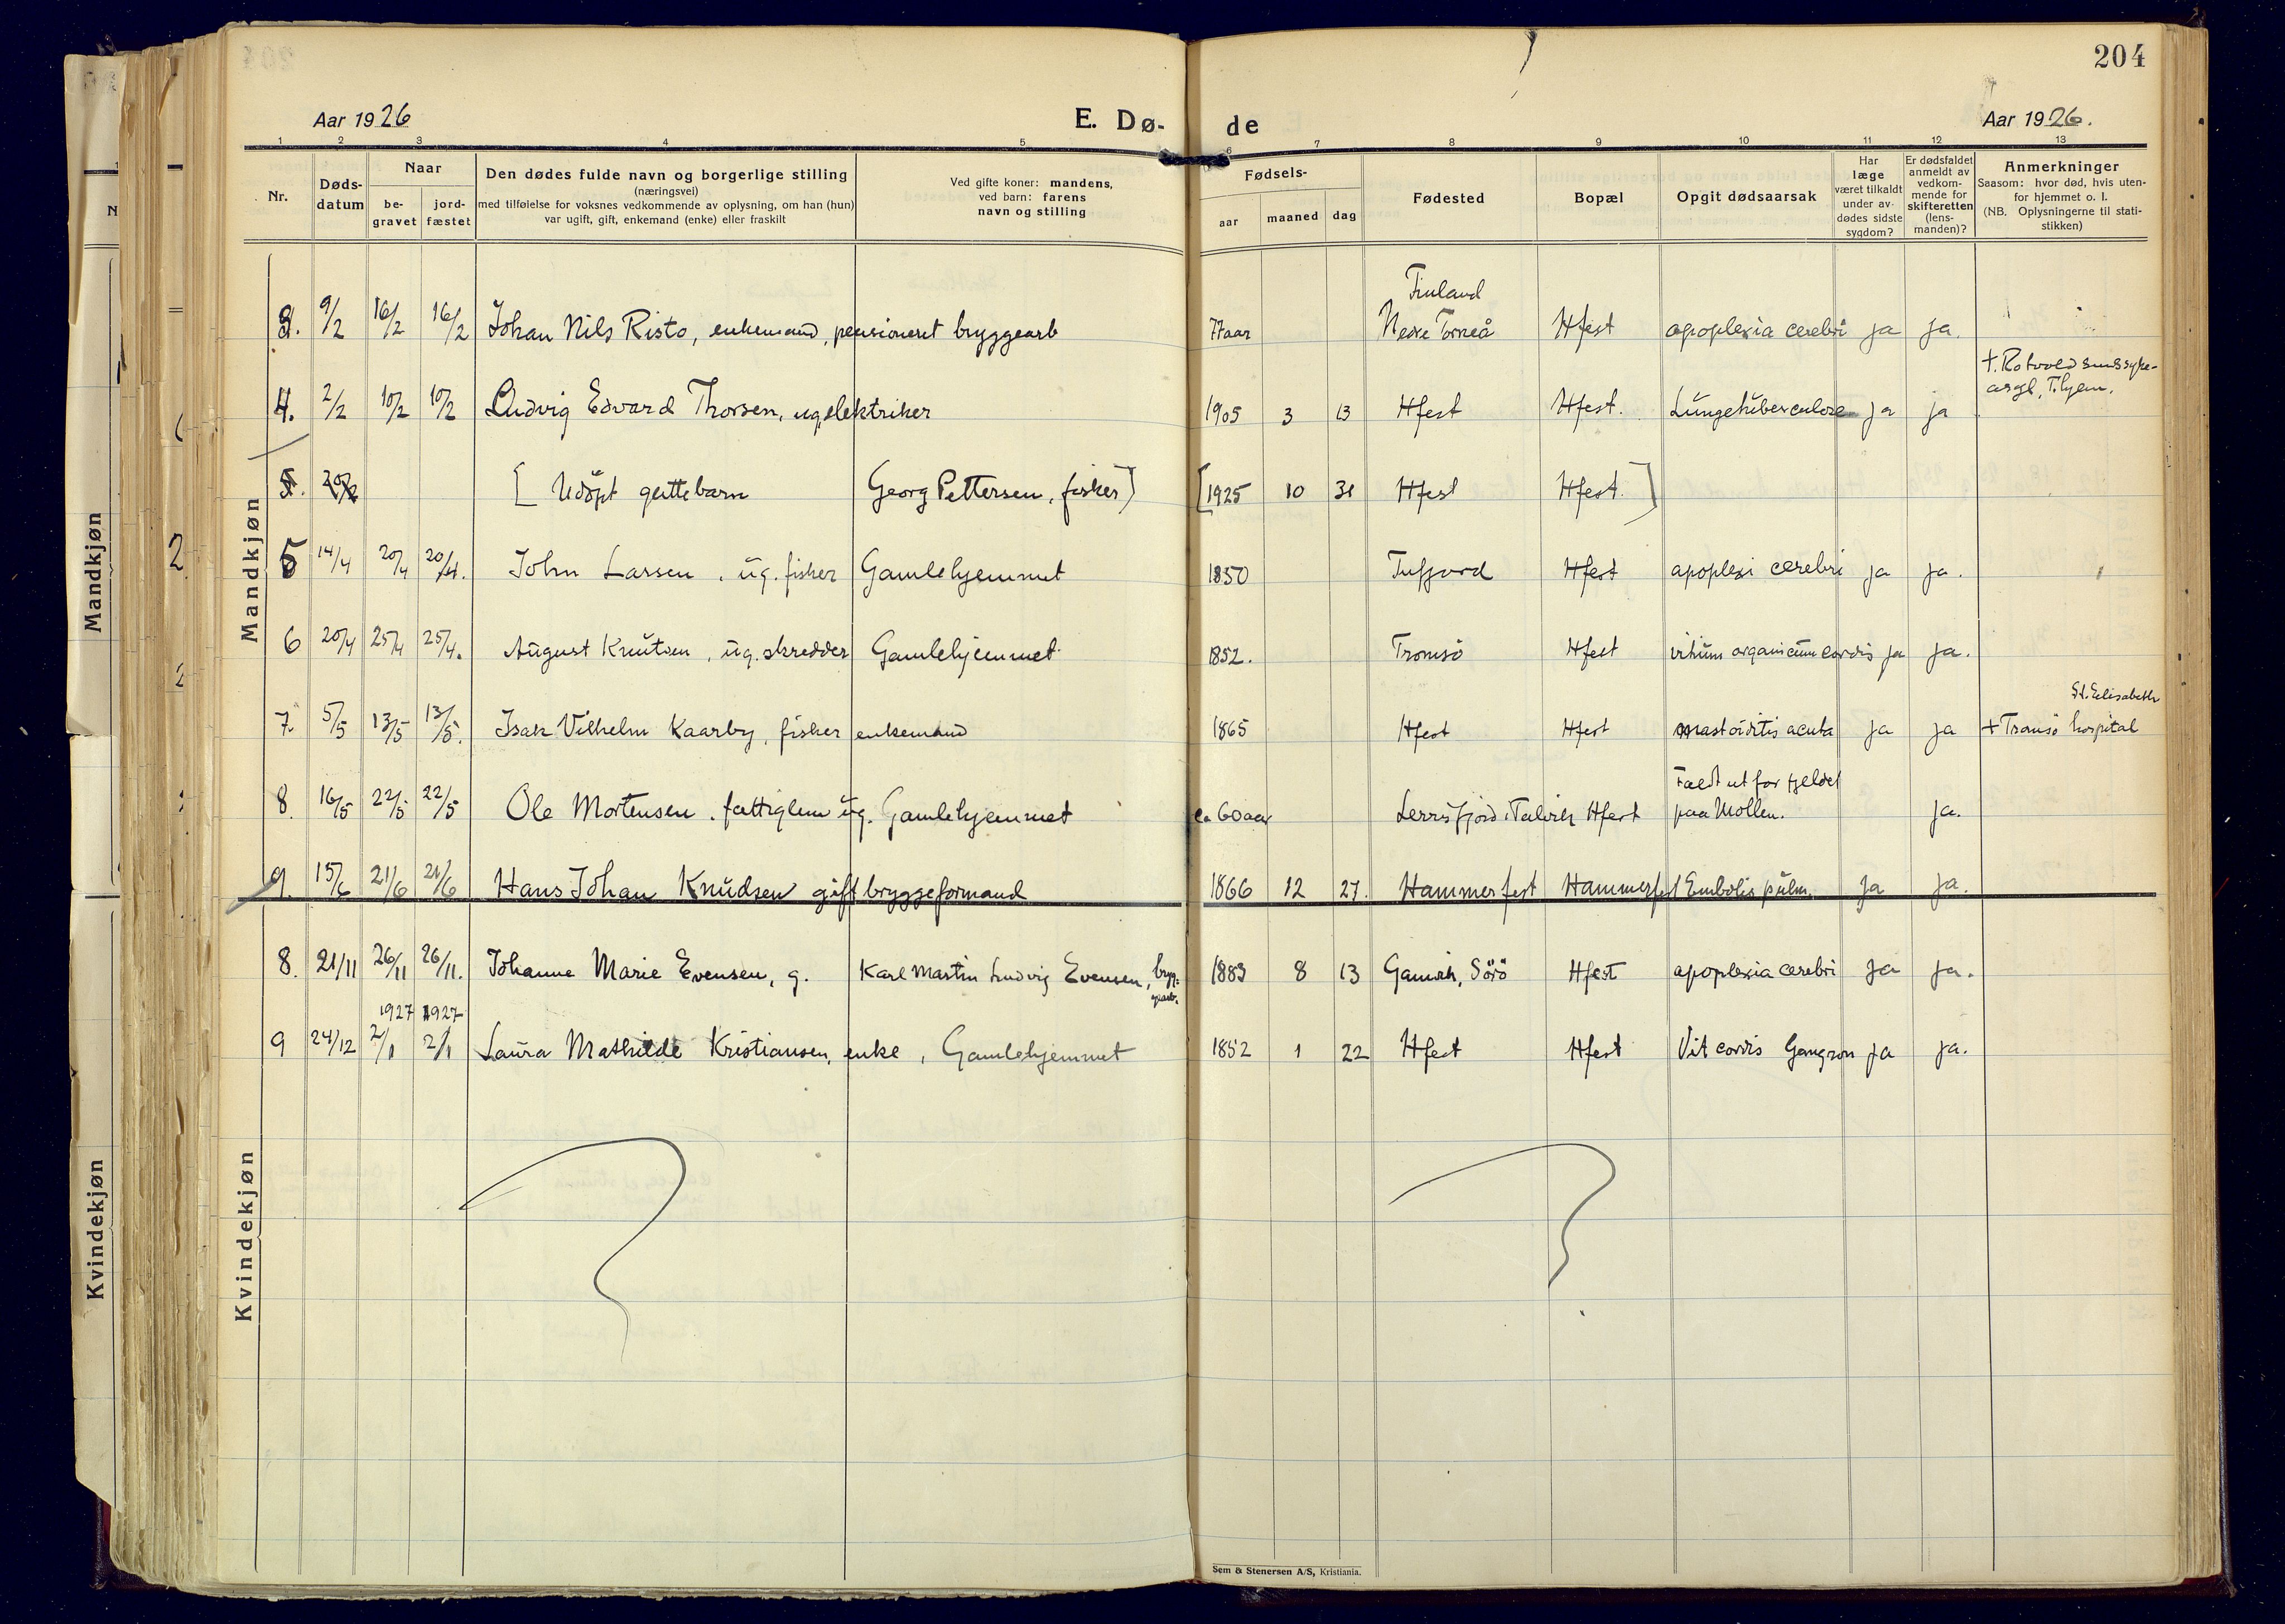 204
Aar 1926
E. Dø-
de
Aar 1926.
1 2 3 4 5 6 7 8 9 10 11 12 13
Nr.
Døds-
datum
Naar
be-
gravet
jord-
fæstet
Den dødes fulde navn og borgerlige stilling
(næringsvei)
med tilføielse for voksnes vedkommende av oplysning, om han (hun)
var ugift, gift, enkemand (enke) eller fraskilt
Ved gifte koner: mandens,
ved barn: farens
navn og stilling
Fødsels-
aar
maaned
dag
Fødested
Bopæl
Opgit dødsaarsak
Har
læge
været tilkaldt
under av-
dødes sidste
sygdom?
Er dødsfaldet
anmeldt av
vedkom-
mende for
skifteretten
(lens-
manden)?
Anmerkninger
Saasom: hvor død, hvis uten-
for hjemmet o. l.
(NB. Oplysningerne til stati-
stikken)
Mandkjøn
Mandkjøn
Finland
3. 9/2 16/2 16/2 Johan Nils Risto, enkemand, pensioneret bryggearb 77 aar Nedre Torneå Hfest apoplexia cerebri ja ja.
† Rotvold sinssyke-
asyl, T.hjem.
4. 2/2 10/2 10/2 Ludvig Edvard Thorsen, ug. elektriker 1905 3 13 Hfest Hfest. Lungetuberculose ja ja
5. 20/2 [Udöpt guttebarn Georg Pettersen, fisker] [1925 10 31 Hfest Hfest.]
5 14/4 20/4 20/4. John Larsen, ug. fisker Gamlehjemmet 1850 Tufjord Hfest apoplexi cerebri ja ja.
6 20/4 25/4 25/4. August Knutsen, ug. skredder Gamlehjemmet 1852. Tromsö Hfest vitium organicum cordis ja ja.
St. Elisabeth
7. 5/5 13/5 13/5. Isak Vilhelm Kaarby, fisker enkemand 1865 Hfest Hfest mastoiditis acuta ja ja † Tromsö hospital
Faldt ut for fjeldet
8. 16/5 22/5 22/5 Ole Mortensen, fattiglem ug. Gamlehjemmet ca 60 aar Lerrisfjord i Talvik Hfest paa Mollen. ja.
9. 15/6 21/6 21/6 Hans Johan Knudsen gift bryggeformand 1866 12 27. Hammerfest Hammerfest Embolis pulm. ja ja.
8. 21/11 26/11 26/11. Johanne Marie Evensen, g. Karl Martin Ludvig Evensen, bryg-
gearb. 1883 8 13 Gamvik, Sörö Hfest apoplexia cerebri ja ja.
1927 1927
9 24/12 2/1 2/1 Laura Mathilde Kristiansen, enke, Gamlehjemmet 1852 1 22 Hfest Hfest Vit cordis Gangren ja ja.
Kvindekjøn
Kvindekjøn
Sem & Stenersen A/S, Kristiania.